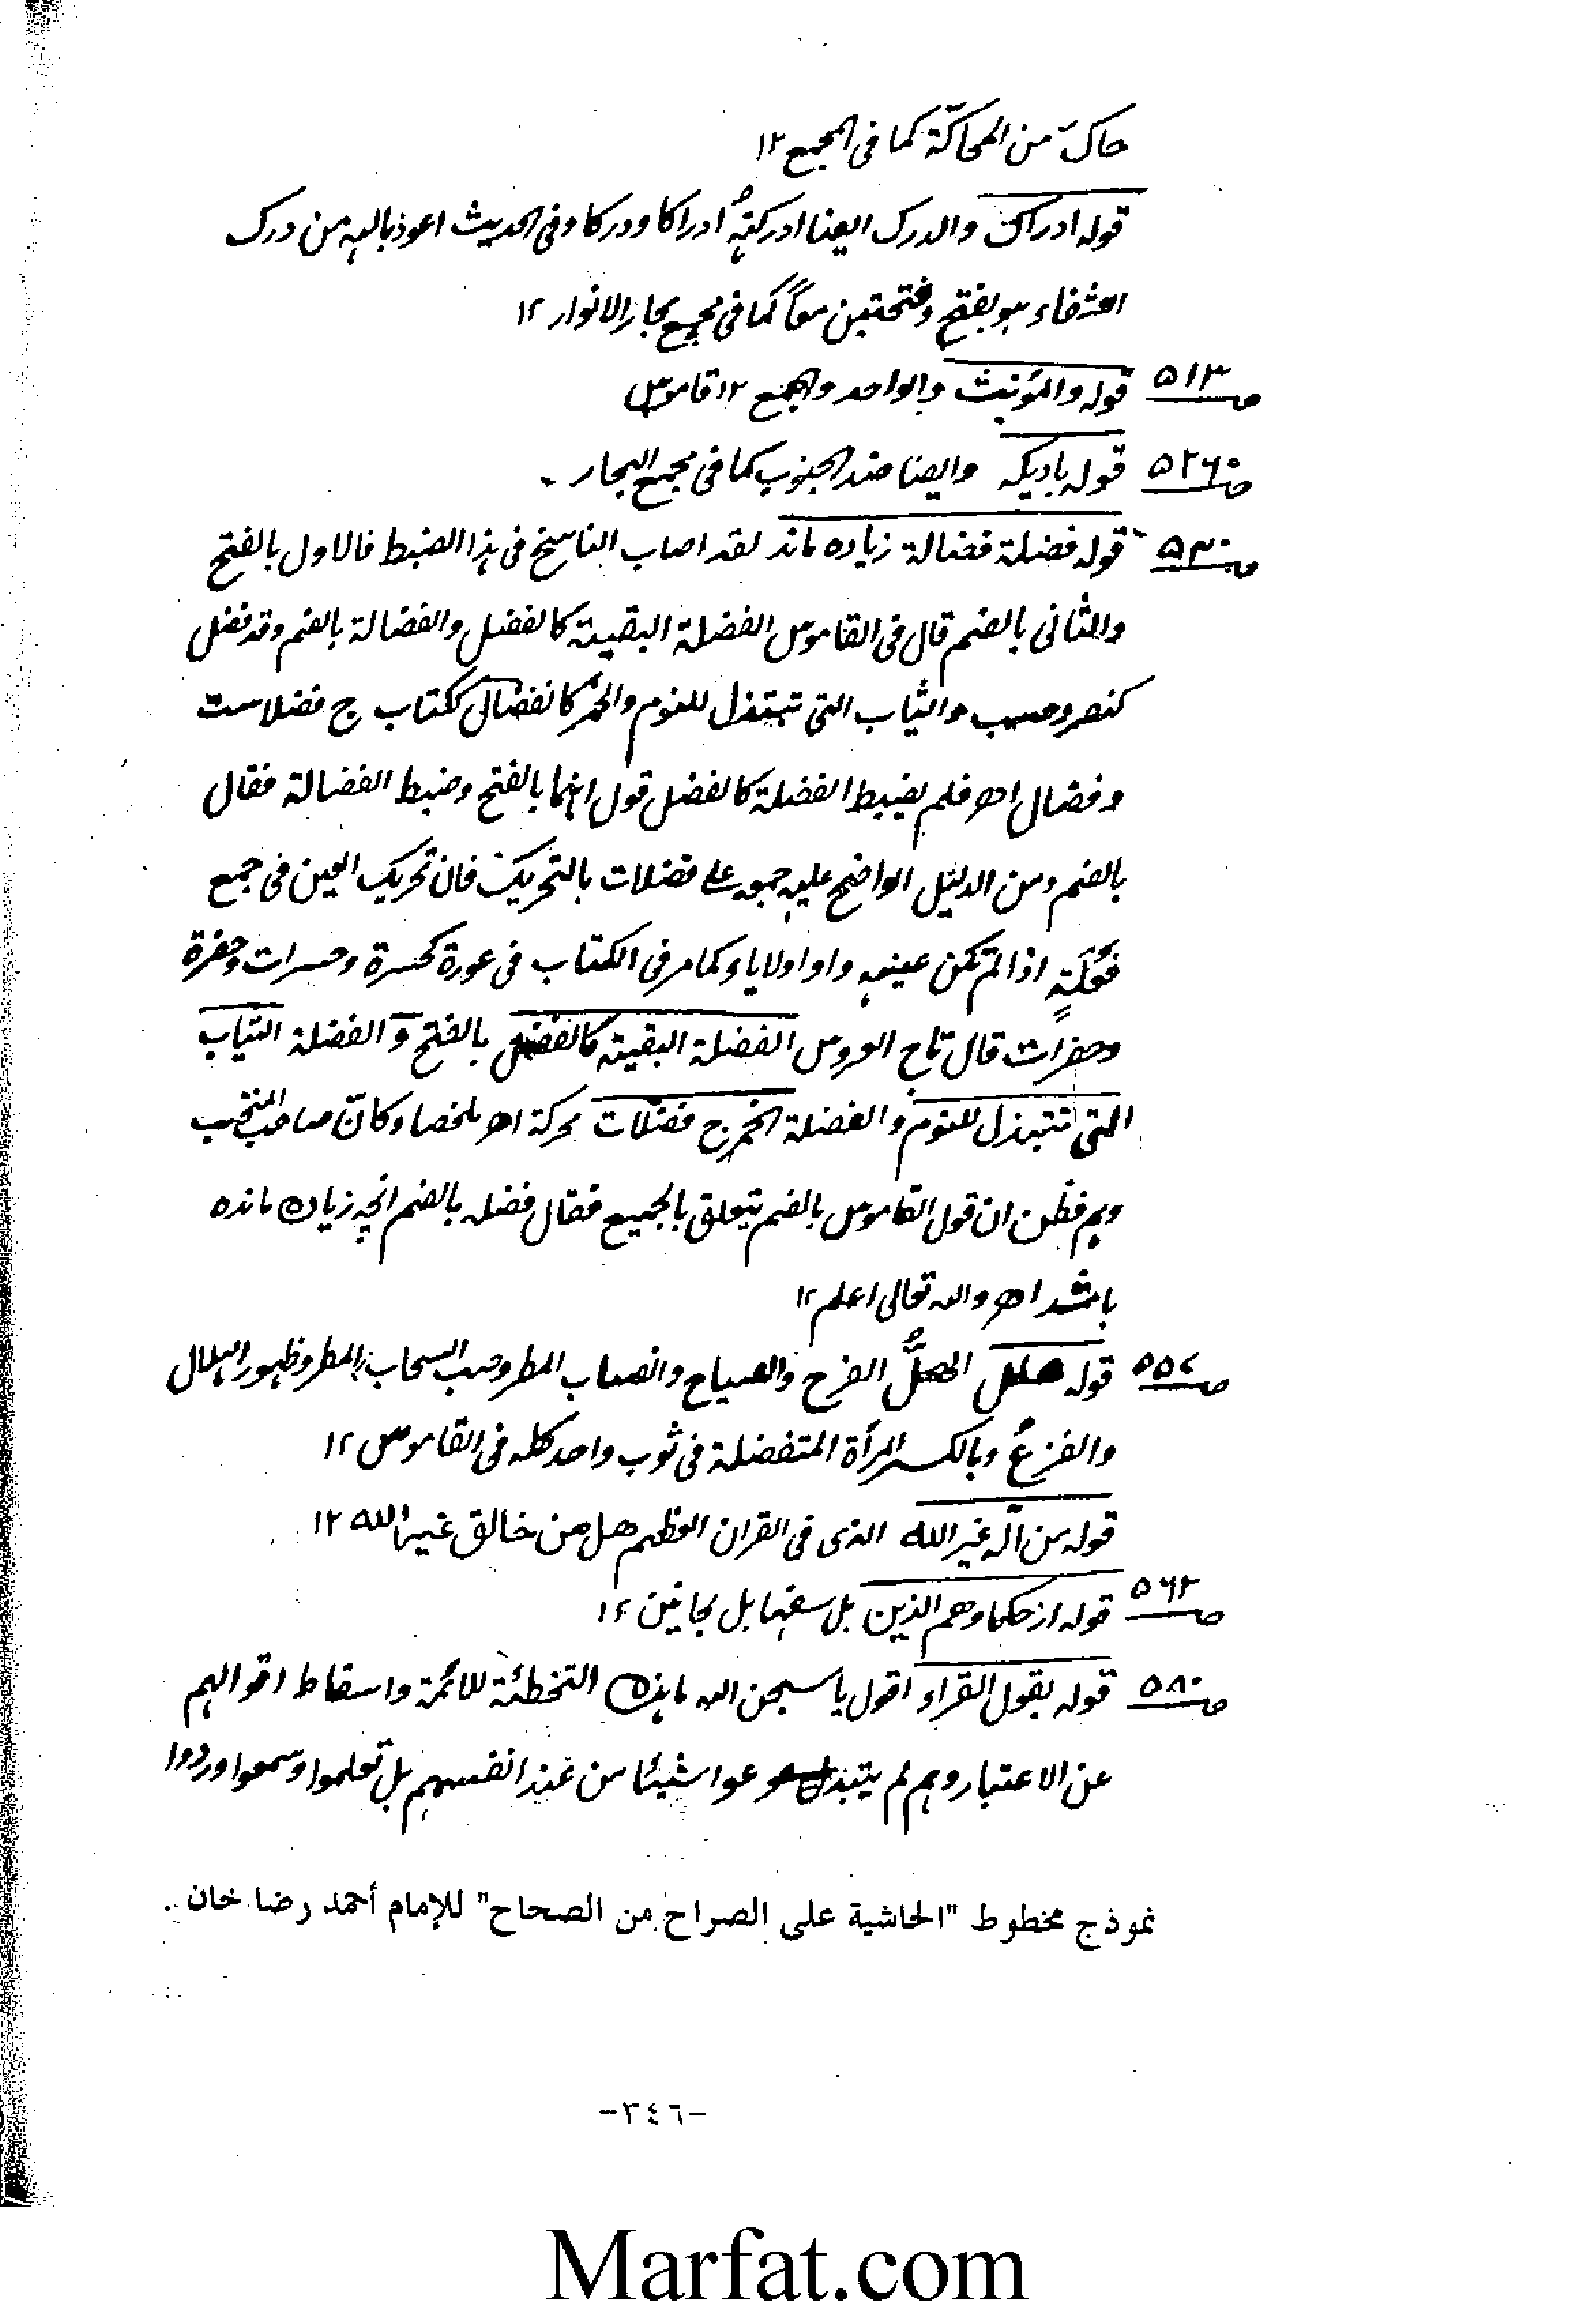 حاكّ من المحاكّة كما فى المجمع ١٢
قوله ادراك والدرك ايضا ادركتہٗ ادراكا ودركا وفى الحديث اعوذ باللہ من درك
الشقاء ہو بفتح وفتحتين معاً كما فى مجمع بحار الانوار ١٢
صـ٥١٣ قوله والمؤنث والواحد والجمع ١٢ قاموس
صـ٥٢٦ قوله باديكہ وايضا ضد الجنوب كما فى مجمع البحار ۔
صـ٥٣٠ قوله فضلة فضالة زياده ماند لقد اصاب الناسخ فى ہذا الضبط فالاول بالفتح
والثانى بالضم قال فى القاموس الفضلة البقية كالفضل والفضالة بالضم وقد فضل
كنصر وحسب والثياب التى تبتذل للنوم والخمر كالفضال ككتاب ج فضلات
وفضال اھ فلم يضبط الفضلة كالفضل قول انہا بالفتح وضبط الفضالة فقال
بالضم ومن الدليل الواضح عليہ جمعہ على فضلات بالتحريك فان تحريك العين فى جمع
فَعْلَةٍ اذا لم تكن عينہ واوا ولا ياء كما مر فى الكتاب فى عورة كحسرة وحسرات وحفرة
وحفرات قال تاج العروس الفضلة البقية كالفضل بالفتح و الفضلة الثياب
التى تبتذل للنوم و الفضلة الخمر ج فضلات محركة اھ ملخصا وكانّ صاحب المنتخب
وہم فظن ان قول القاموس بالضم يتعلق بالجميع فقال فضلہ بالضم انچہ زياده مانده
باشد اھ واللہ تعالى اعلم ١٢
صـ٥٥٧ قوله هلل الهلُّ الفرح والصياح وانصباب المطر وصب السحاب المطر وظہور الہلال
والفزع وبالكسر المرأة المتفضلة فى ثوب واحد كلہ فى القاموس ١٢
قوله من اله غير الله الذى فى القران العظيم هل من خالق غير الله ١٢
صـ٥٦٢ قوله از حكما وهم الذين بل سفہا بل مجانين ١٢
صـ٥٨٠ قوله بقول القراء اقول يا سبحن اللہ ما ہذه التخطئة للائمة واسقاط اقوالہم
عن الاعتبار وہم لم يبتدعوا شيئا من عند انفسہم بل تعلموا وسمعوا ورووا
نموذج مخطوط "الحاشية على الصراح من الصحاح" للإمام أحمد رضا خان .
-٣٤٦-
Marfat.com